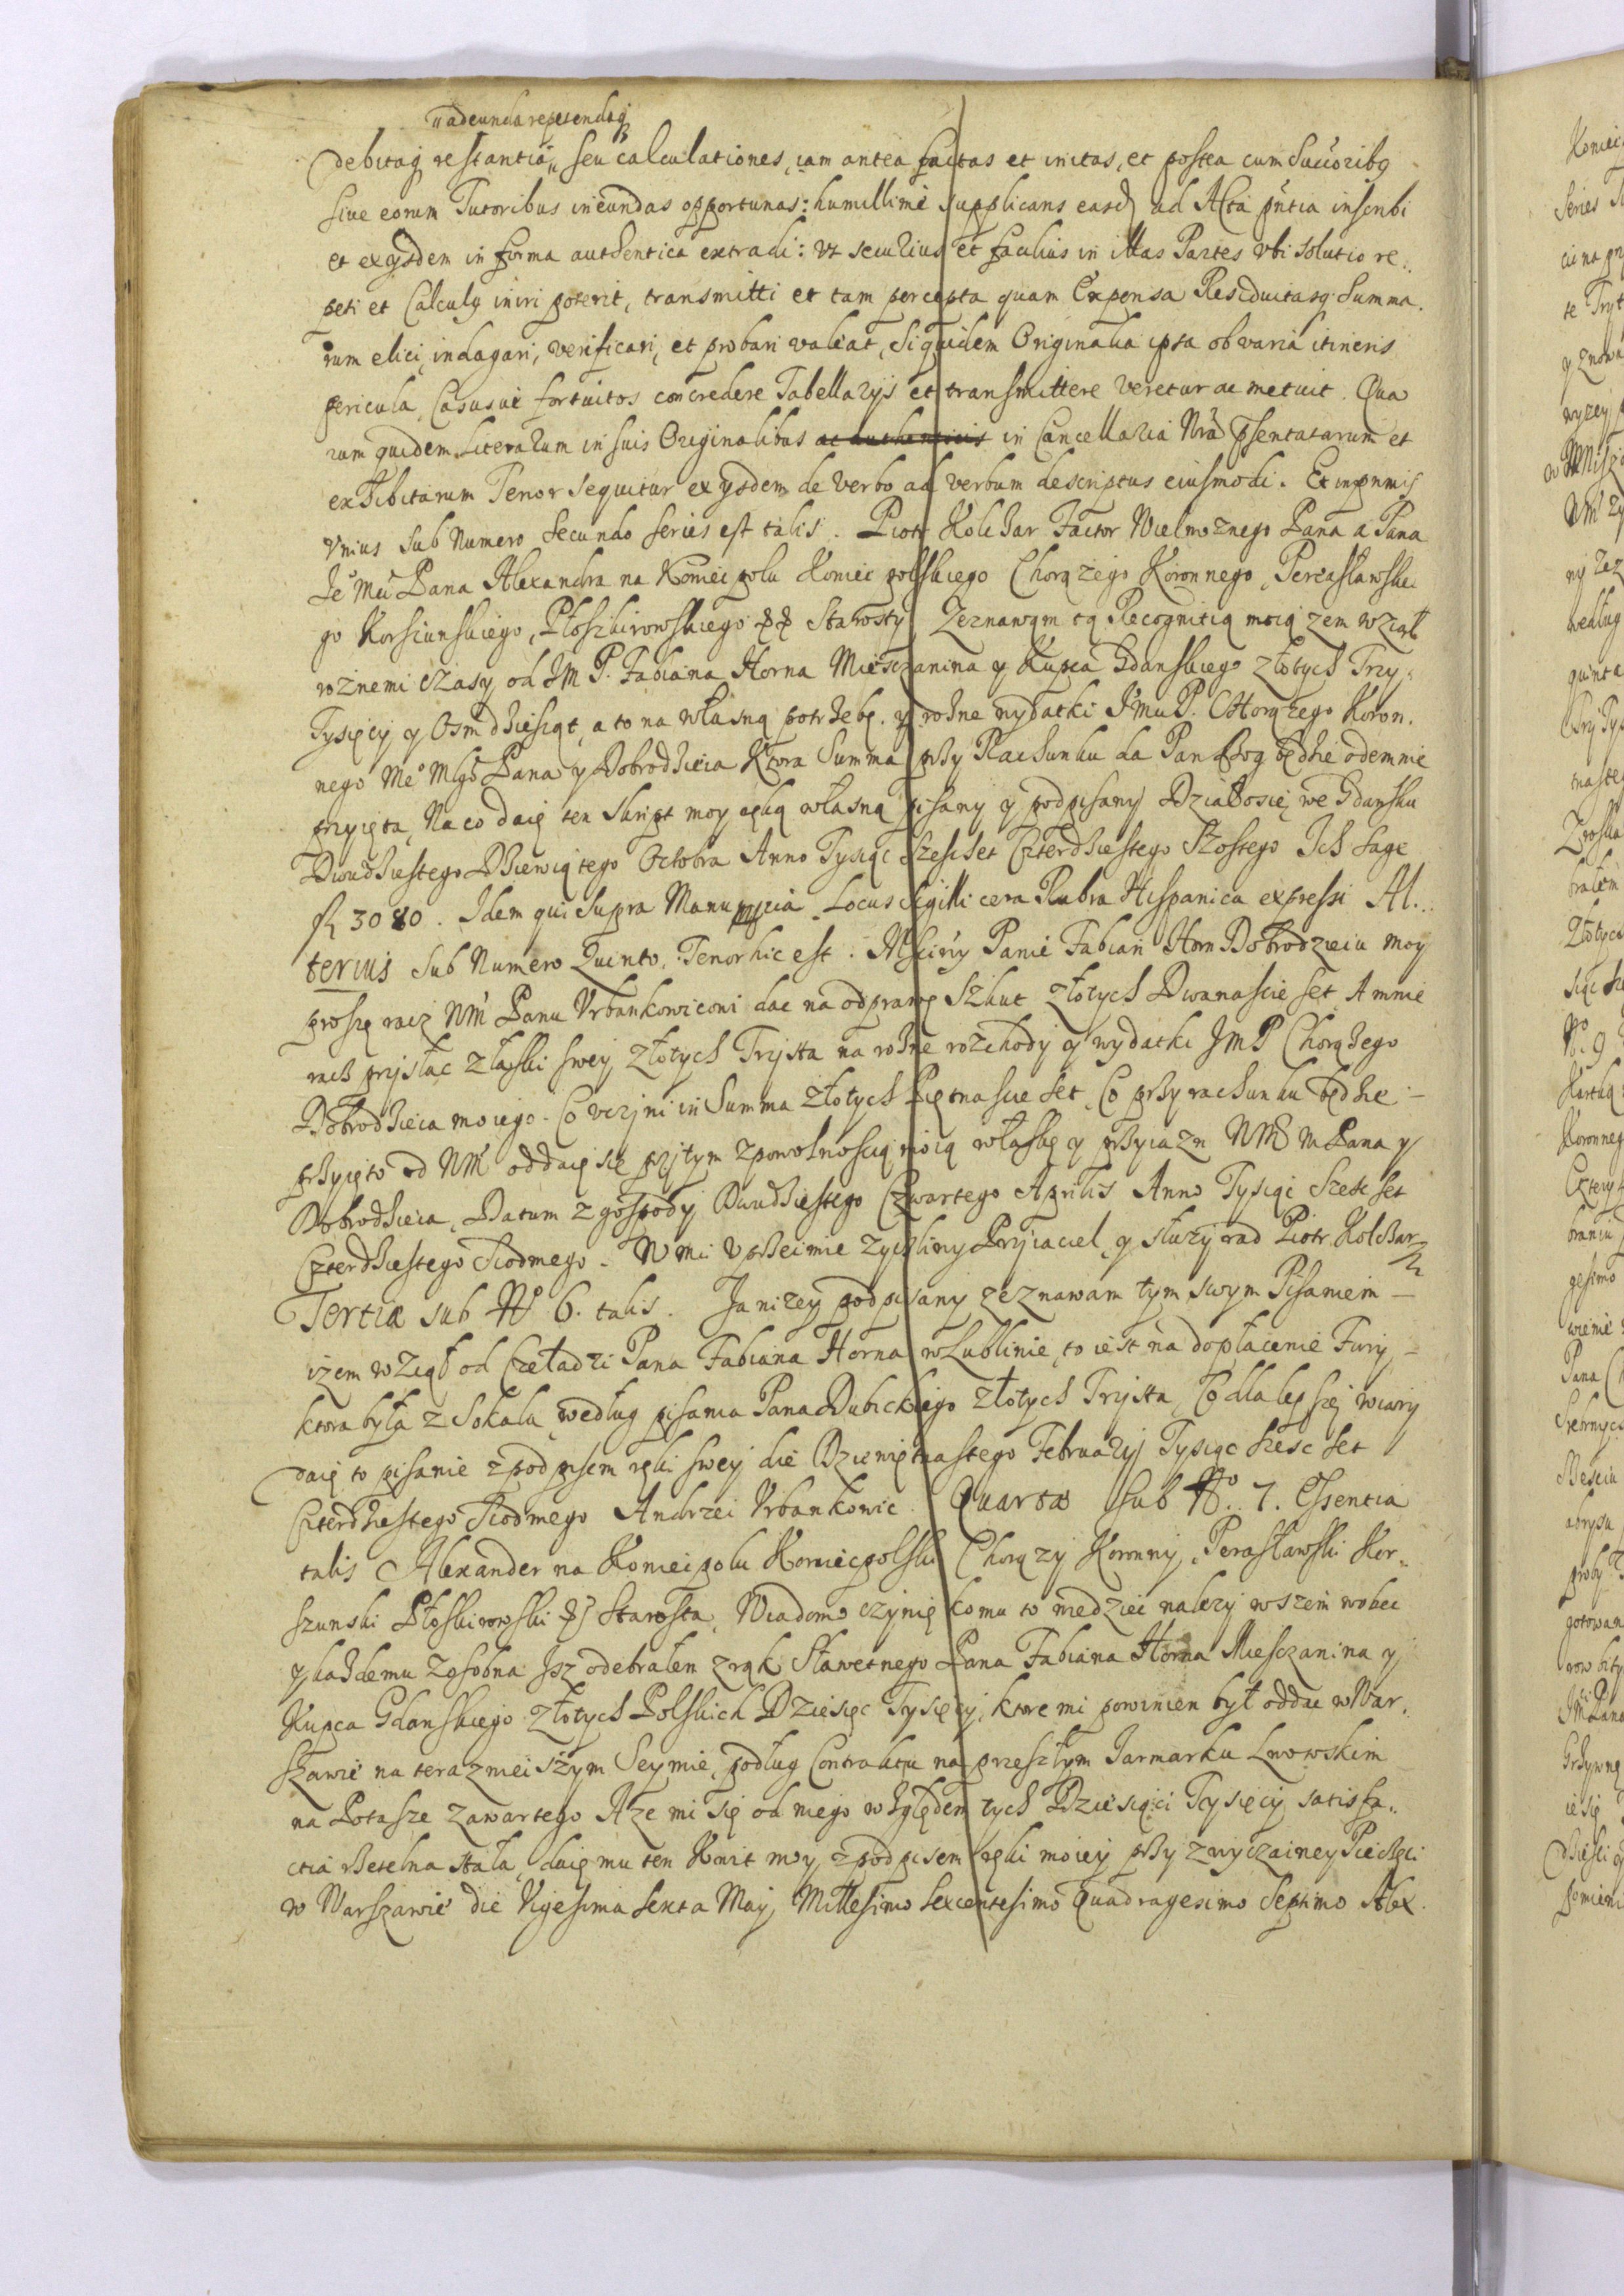 "adeunda repetendaq
debitaq restantia" seu calculationes, iam antea factas et initas, et postea cum Succoribq
siue eorum Tutoribus ineundas opportunas: humillimè supplicans easd ad Acta pntia inscribi
et ex ysdem in forma authentica extradi: vt securius et facilius in illas Partes vbi solutio re:
peti et Calculq iniri poterit, transmitti et tam percepta quam Expensa Residuitasq. Summa.
rum elici, indagari, verificari, et probari valeat, Siquidem Originalia ipsa ob varia itineris
pericula, Casusue fortuitos concredere Tabellarijs et transmittere veretur ac metuit. Qua
rum quidem Literarum in suis Originalibus ac authenticis in Cancellaria Nra psentatarum et
exhibitarum Tenor sequitur ex ysdem de verbo ad verbum descriptus eiusmodi. Et inprimis
vnius Sub Numero Secundo series est talis. Piotr Kolchar Factor Wielmoznego Pana a Pana
Je Mci Pana Alexandra na Koniecpolu Koniecpolskiego Chorązego Koronnego, Pereasławskie
go Korsunskiego, Płoskirowskiego &&  Starosty Zeznawąm tą Recognitią moią zem wziął
roznemi czasy od JM P. Fabiana Horna Miesczanina y Kupca Gdanskiego złotych Trzy
Tysięcy y Osmdziesiąt, a to na własną potrzebę. y rozne wydatki JMci P. Chorązego Koron.
nego Me Mgo Pana y Dobrodzieia Ktora Summa przy Rachunku da Pan Bog będzie odemnie
przyięta, Na co daię ten Skript moy ręką własną pisany y podpisany Działosię we Gdansku
Dwudziestego Dziewiątego Octobra Anno Tysiąc Szescset Czterdziestego Szostego Ich sage
fl 3080. Idem qui Supra Manu ppria Locus Sigilli cera Rubra Hispanica expressi Al.
terius Sub Numero Quinto, Tenor hic est. Msciwy Panie Fabian Horn Dobrodzieiu moy
proszę racz WM Panu Vrbankowiconi dac na odprawę Szkut złotych Dwanascie set A mnie
racz przysłac z łaski swey złotych Trzysta na rozne rozchody y wydatki JMP Chorązego
Dobrodzieia moiego. Co vczyni in Summa złotych Piętnascie set, Co przy rachunku będzie -
przyięto od WM oddaię się przytym z powolnoscią moią w łaskę y przyiazn WM M Pana y
Dobrodzieia, Datum z gospody Dwudziestego Czwartego Aprilis Anno Tysiąc Szesc set
Czterdziestego Siodmego. WMci vprzeimie zyczliwy Przyiaciel y słuzyc rad Piotr Kolchar
Tertiæ sub No 6. talis. Ja nizey podpisany zeznawam tym swym Pisaniem -
izem wziął od Czeladzi Pana Fabiana Horna w Lublinie, to iest na dopłacenie Fury -
ktora była z Sokala, według pisania Pana Dubickiego złotych Trzysta, Co dla lepszej wiary
daię to pisanie z podpisem ręki swey die Dziewiętnastego Februarij Tysiąc szesc set
Czterdziestego Siodmego Andrzei Vrbankowic. Quartæ sub No. 7. Essentia
talis Alexander na Koniecpolu Koniecpolski Chorązy Koronny, Perasławski Kor
szunski Płoskirowski &c Starosta, Wiadomo czynię komu to wiedziec nalezy wszem wobec
y kazdemu zosobna Jsz odebrałen z rąk Sławetnego Pana Fabiana Horna Miesczanina y
Kupca Gdanskiego złotych Polskich Dziesięc Tysięcy, ktore mi powinien był oddac w War.
szawie na terazniejszym Seymie, podług Contraktu na przeszłym Jarmarku Lwowskim
na Potasze zawartego A ze mi się od niego względem tych Dziesiąci Tysięcy satisfa..
ctia zetelna stała, daię mu ten Kwit moy z podpisem ręki moiey przy zwyczainey Pieczęci
w Warszawie die Vigesima sexta Maij Millesimo sexcentesimo Quadragesimo Septimo Alex.